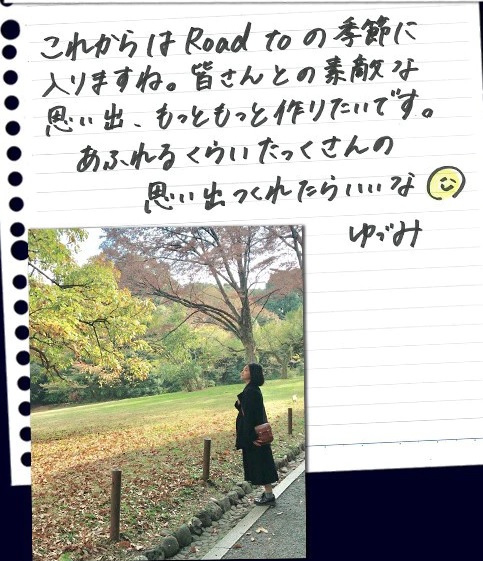 これからは Road to の季節に
入りますね。皆さんとの素敵な
思い出、もっともっと作りたいです。
あふれるくらいたっくさんの
思い出つくれたらいいな
ゆづみ